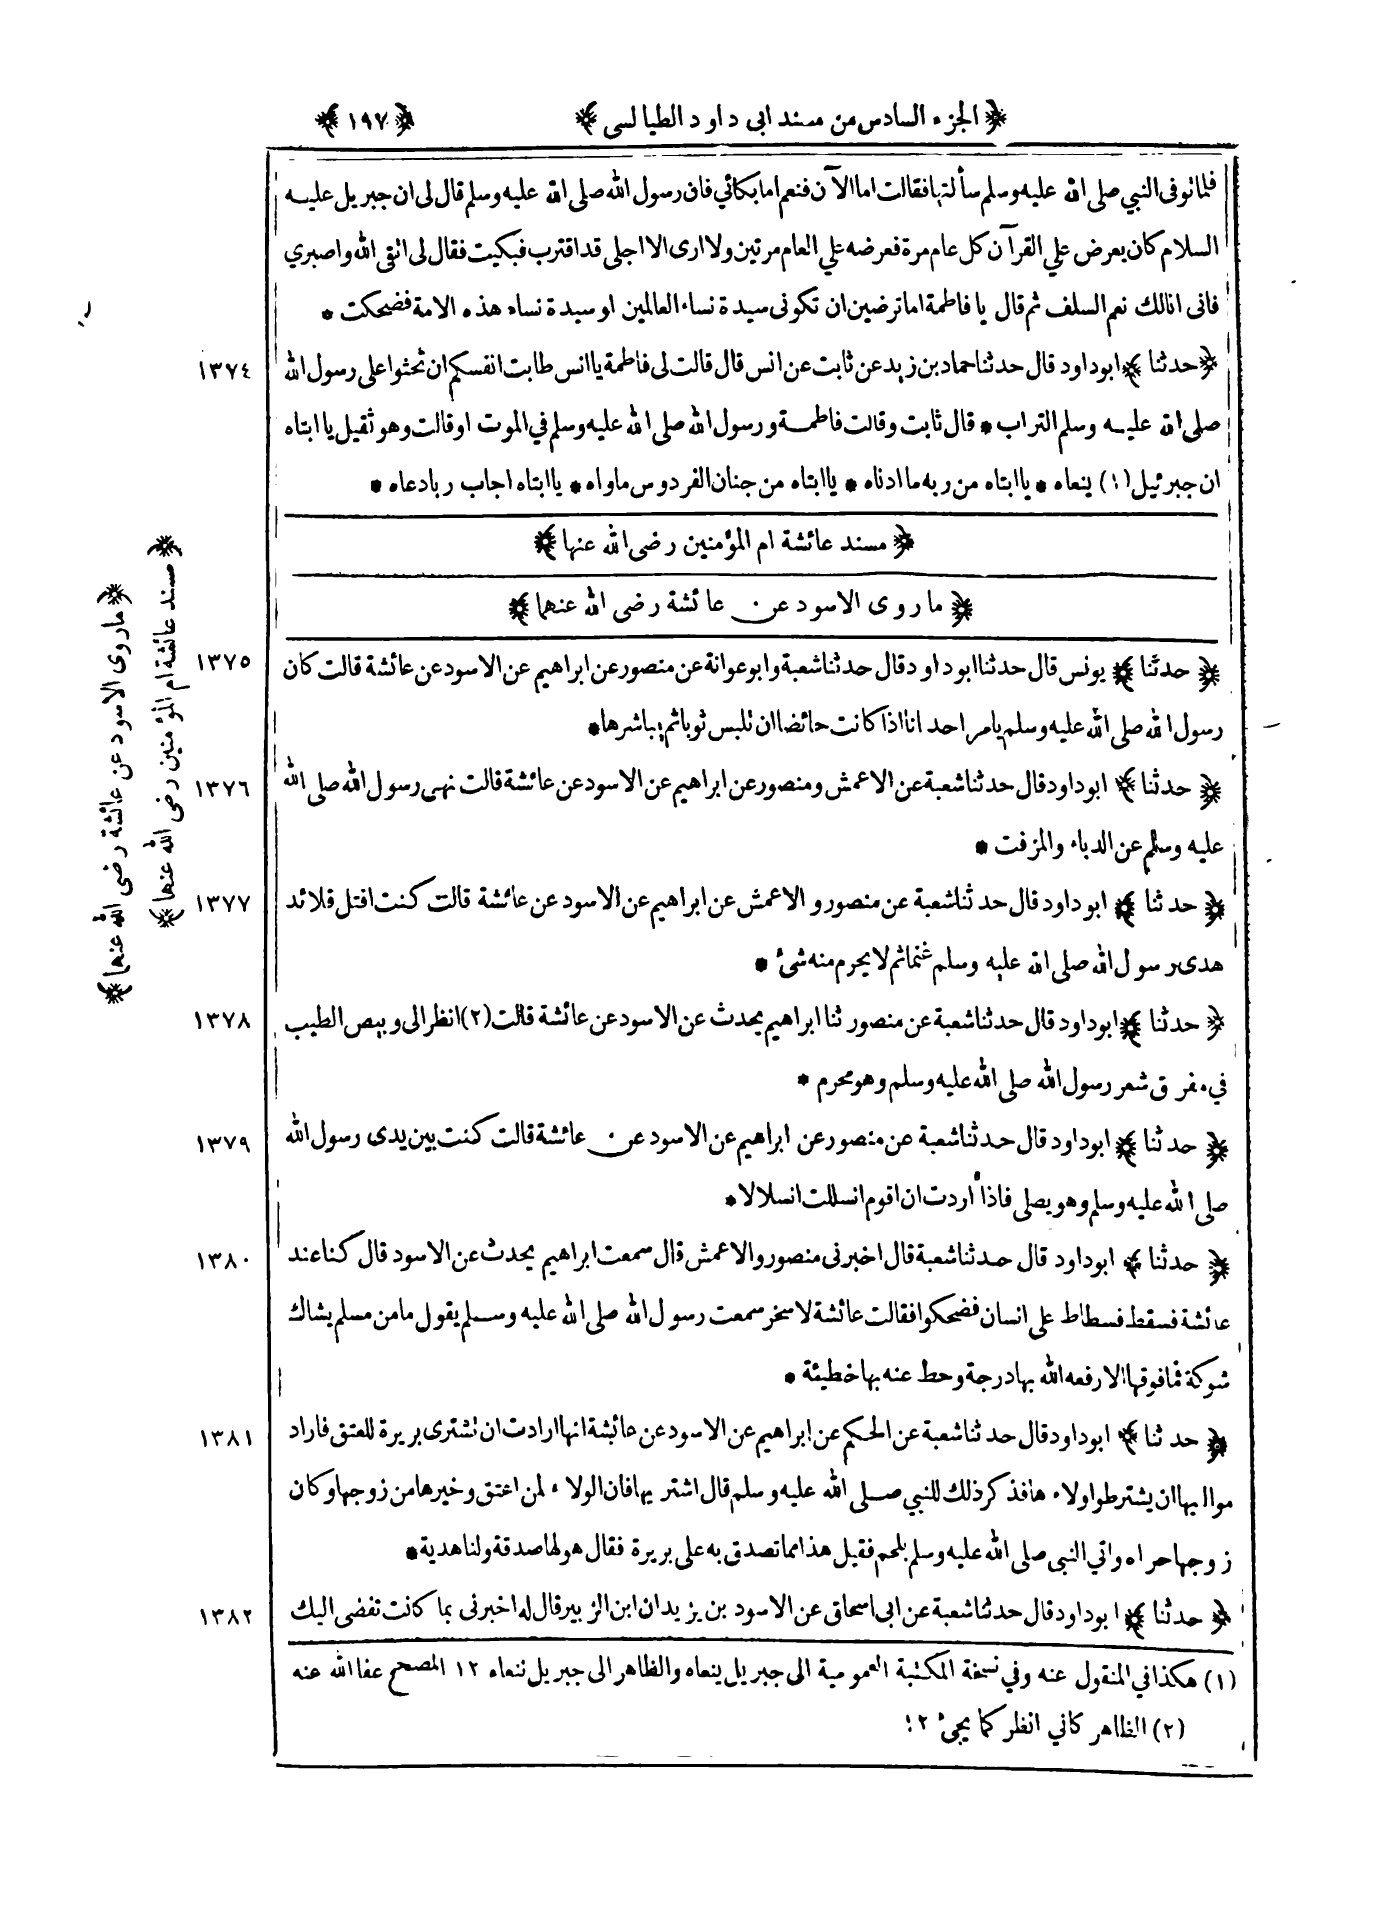 ﴿ الجزء السادس من مسند ابى داود الطيالسى ﴾ ﴿ ١٩٧ ﴾
فلما توفى النبي صلى الله عليه وسلم سألتها فقالت اما الآن فنعم اما بكائي فان رسول الله صلى الله عليه وسلم قال لى ان جبريل عليه
السلام كان يعرض علي القرآن كل عام مرة فعرضه علي العام مرتين ولا ارى الا اجلى قد اقترب فبكيت فقال لى اتقى الله واصبري
فانى انا لك نعم السلف ثم قال يا فاطمة اما ترضين ان تكونى سيدة نساء العالمين او سيدة نساء هذه الامة فضحكت *
١٣٧٤ ﴿ حدثنا ﴾ ابوداود قال حدثنا حماد بن زيد عن ثابت عن انس قال قالت لى فاطمة يا انس طابت انفسكم ان تحثوا على رسول الله
صلى الله عليه وسلم التراب * قال ثابت وقالت فاطمة ورسول الله صلى الله عليه وسلم في الموت او قالت وهو ثقيل يا ابتاه
ان جبرئيل (١) ينعاه * يا ابتاه من ربه ما ادناه * يا ابتاه من جنان الفردوس ماواه * يا ابتاه اجاب ربا دعاه *
﴿ مسند عائشة ام المؤمنين رضى الله عنها ﴾
﴿ ما روى الاسود عن عائشة رضى الله عنهما ﴾
١٣٧٥ ﴿ حدثنا ﴾ يونس قال حدثنا ابوداود قال حدثنا شعبة وابوعوانة عن منصور عن ابراهيم عن الاسود عن عائشة قالت كان
رسول الله صلى الله عليه وسلم يامر احدانا اذا كانت حائضا ان تلبس ثوبا ثم يباشرها *
١٣٧٦ ﴿ حدثنا ﴾ ابوداود قال حدثنا شعبة عن الاعمش ومنصور عن ابراهيم عن الاسود عن عائشة قالت نهى رسول الله صلى الله
عليه وسلم عن الدباء والمزفت *
١٣٧٧ ﴿ حدثنا ﴾ ابوداود قال حدثنا شعبة عن منصور والاعمش عن ابراهيم عن الاسود عن عائشة قالت كنت افتل قلائد
هدى رسول الله صلى الله عليه وسلم غنما ثم لا يحرم منه شئ *
١٣٧٨ ﴿ حدثنا ﴾ ابوداود قال حدثنا شعبة عن منصور ثنا ابراهيم يحدث عن الاسود عن عائشة قالت (٢) انظر الى وبيص الطيب
في مفرق شعر رسول الله صلى الله عليه وسلم وهو محرم *
١٣٧٩ ﴿ حدثنا ﴾ ابوداود قال حدثنا شعبة عن منصور عن ابراهيم عن الاسود عن عائشة قالت كنت بين يدى رسول الله
صلى الله عليه وسلم وهو يصلى فاذا أردت ان اقوم انسللت انسلالا *
١٣٨٠ ﴿ حدثنا ﴾ ابوداود قال حدثنا شعبة قال اخبرنى منصور والاعمش قال سمعت ابراهيم يحدث عن الاسود قال كنا عند
عائشة فسقط فسطاط على انسان فضحكوا فقالت عائشة لا سخر سمعت رسول الله صلى الله عليه وسلم يقول ما من مسلم يشاك
شوكة فما فوقها الا رفعه الله بها درجة وحط عنه بها خطيئة *
١٣٨١ ﴿ حدثنا ﴾ ابوداود قال حدثنا شعبة عن الحكم عن ابراهيم عن الاسود عن عائشة انها ارادت ان تشترى بريرة للعتق فاراد
مواليها ان يشترطوا ولاءها فذكر ذلك للنبي صلى الله عليه وسلم قال اشتريها فان الولاء لمن اعتق وخيرها من زوجها وكان
زوجها حرا ه واتي النبى صلى الله عليه وسلم بلحم فقيل هذا مما تصدق به على بريرة فقال هو لها صدقة ولنا هدية *
١٣٨٢ ﴿ حدثنا ﴾ ابوداود قال حدثنا شعبة عن ابى اسحاق عن الاسود بن يزيد ان ابن الزبير قال له اخبرنى بما كانت تفضى اليك
(١) هكذا في المنقول عنه وفي نسخة المكتبة العمومية الى جبريل ينعاه والظاهر الى جبريل ننعاه ١٢ المصحح عفا الله عنه
(٢) الظاهر كاني انظر كما يجئ ١٢
﴿ مسند عائشة ام المؤمنين رضى الله عنها ﴾
﴿ ما روى الاسود عن عائشة رضى الله عنهما ﴾